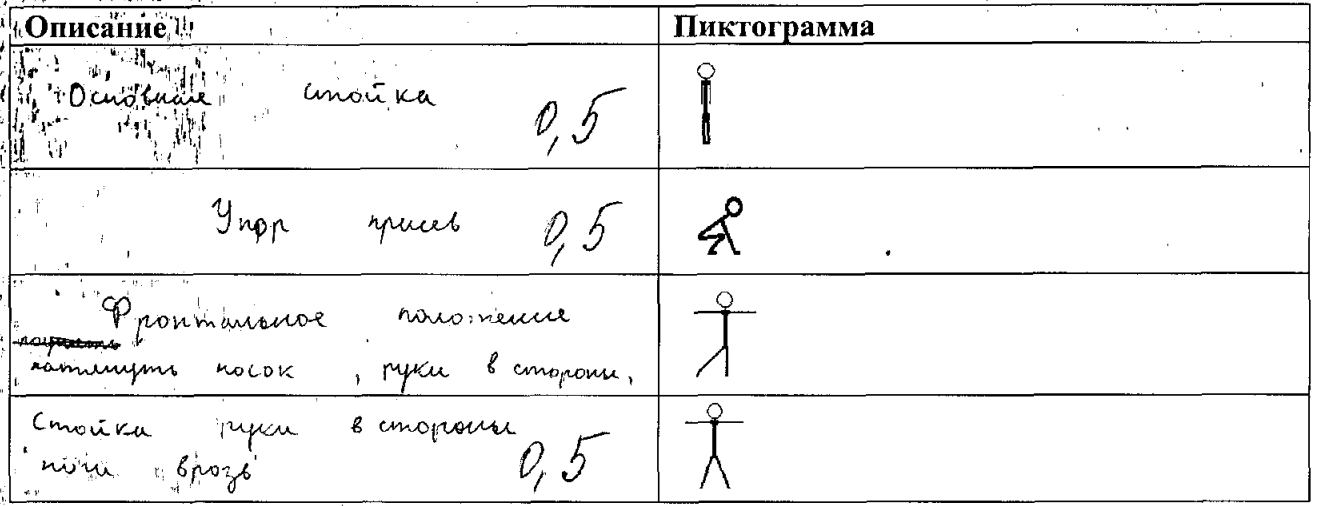 Описание
Пиктограмма
Основная стойка
0,5
Упор присев
0,5
Фронтальное положение
натянуть носок, руки в стороны,
Стойка руки в стороны
ноги врозь
0,5